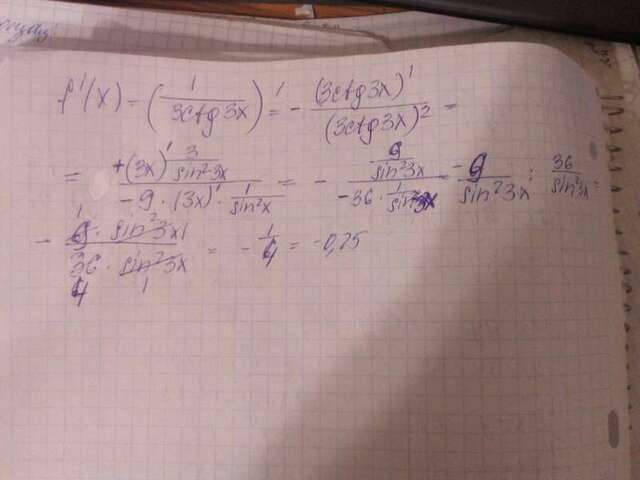 f'(x) = (1/(3ctg3x))' = - (3ctg3x)'/(3ctg3x)² =
= +(3x)' 3/sin²3x / -9·(3x)'·1/sin²x = - 9/sin²3x / -36·1/sin²3x = -9/sin²3x : 36/sin²3x =
- 9·sin²3x 1/36·sin²3x = - 1/4 = -0,25